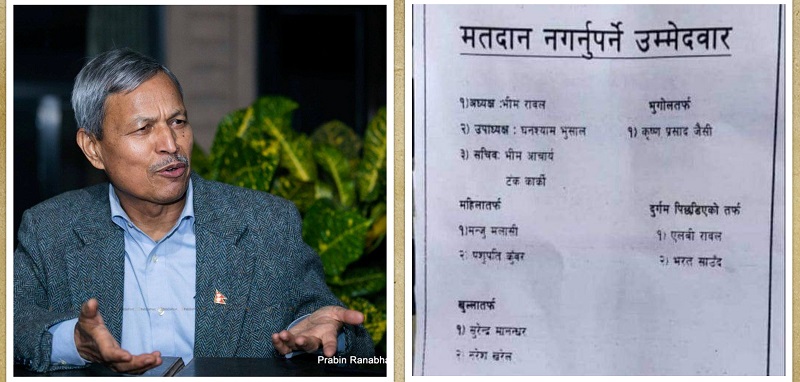 Prabin Ranabha
मतदान नगर्नुपर्ने उम्मेदवार
१)अध्यक्ष :भीम रावल
२) उपाध्यक्ष : घनश्याम भुसाल
३) सचिव: भीम आचार्य
टंक कार्की
भुगोलतर्फ
१) कृष्ण प्रसाद जैसी
महिनातर्फ
१)मन्जु मलासी
२) पशुपति कुँवर
दुर्गम पिछडिएको तर्फ
१) एलबी रावल
२) भरत साउँद
खुल्लातर्फ
१) सुरेन्द्र मानन्धर
२) नरेश खरेल